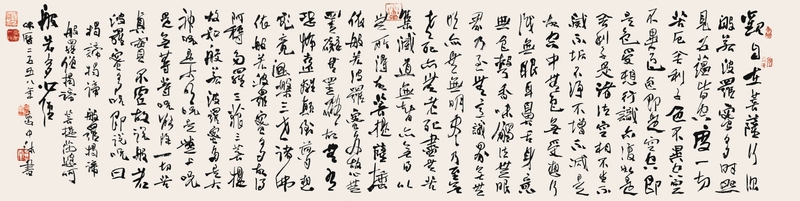 觀自在菩薩行深
般若波羅蜜多時照
見五蘊皆空度一切
苦厄舍利子色不異空空
不異色色即是空空即
是色受想行識亦復如是
舍利子是諸法空相不生不
滅不垢不淨不增不減是
故空中無色無受想行
識無眼耳鼻舌身意
無色聲香味觸法無眼
界乃至無意識界無無
明亦無無明盡乃至無
老死亦無老死盡無苦
集滅道無智亦無得以
無所得故菩提薩埵
依般若波羅蜜多故心無
罣礙無罣礙故無有
恐怖遠離顛倒夢想
究竟涅槃三世諸佛
依般若波羅蜜多故得
阿耨多羅三藐三菩提
故知般若波羅蜜多是大
神咒是大明咒是無上咒
是無等等咒能除一切苦
真實不虛故說般若
波羅蜜多咒即說咒曰
揭諦揭諦 般羅揭諦
般羅僧揭諦 菩提薩婆訶
般若多心經
佛曆二五五八年 書